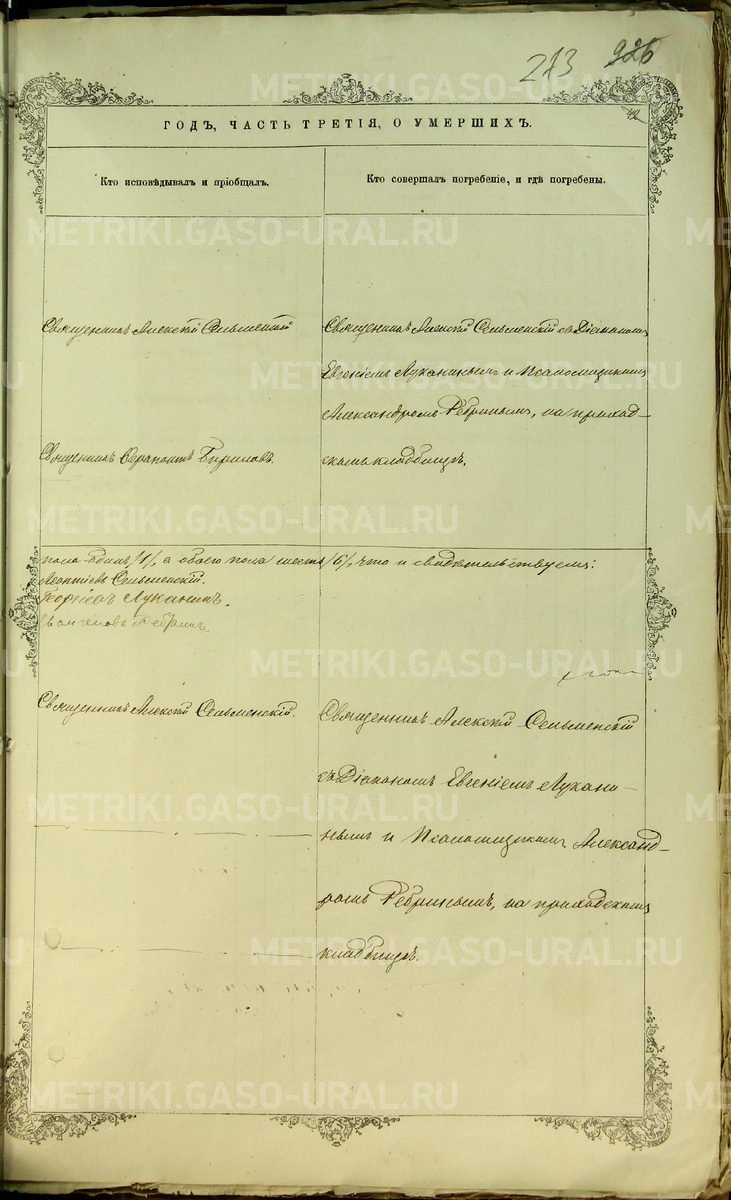 213 926
42
ГОДЪ, ЧАСТЬ ТРЕТІЯ, О УМЕРШИХЪ.
Кто исповѣдывалъ и пріобщалъ.
Кто совершалъ погребеніе, и гдѣ погребены.
Священникъ Алексѣй Сельменскій
Священникъ Алексѣй Сельменскій съ Діакономъ
Евгеніемъ Луканинымъ и Псаломщикомъ
Александромъ Ребринымъ, на приход-
Священникъ Бирюковъ.
скомъ кладбищѣ.
пола одинъ /1/, а обоего пола шесть /6/, что и свидѣтельствуемъ:
Леонтіевъ Сельменскій.
Георгіевъ Луканинъ.
Ребринъ
Священникъ Алексѣй Сельменскій.
Священникъ Алексѣй Сельменскій
съ Діакономъ Евгеніемъ Лукани-
нымъ и Псаломщикомъ Александ-
ромъ Ребринымъ, на приходскомъ
кладбищѣ.
METRIKI.GASO-URAL.RU